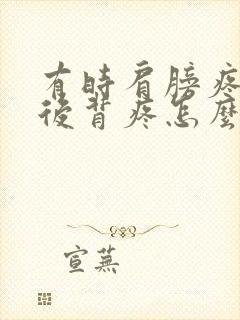 有時肩膀疼
後背疼怎麼
宣蕪